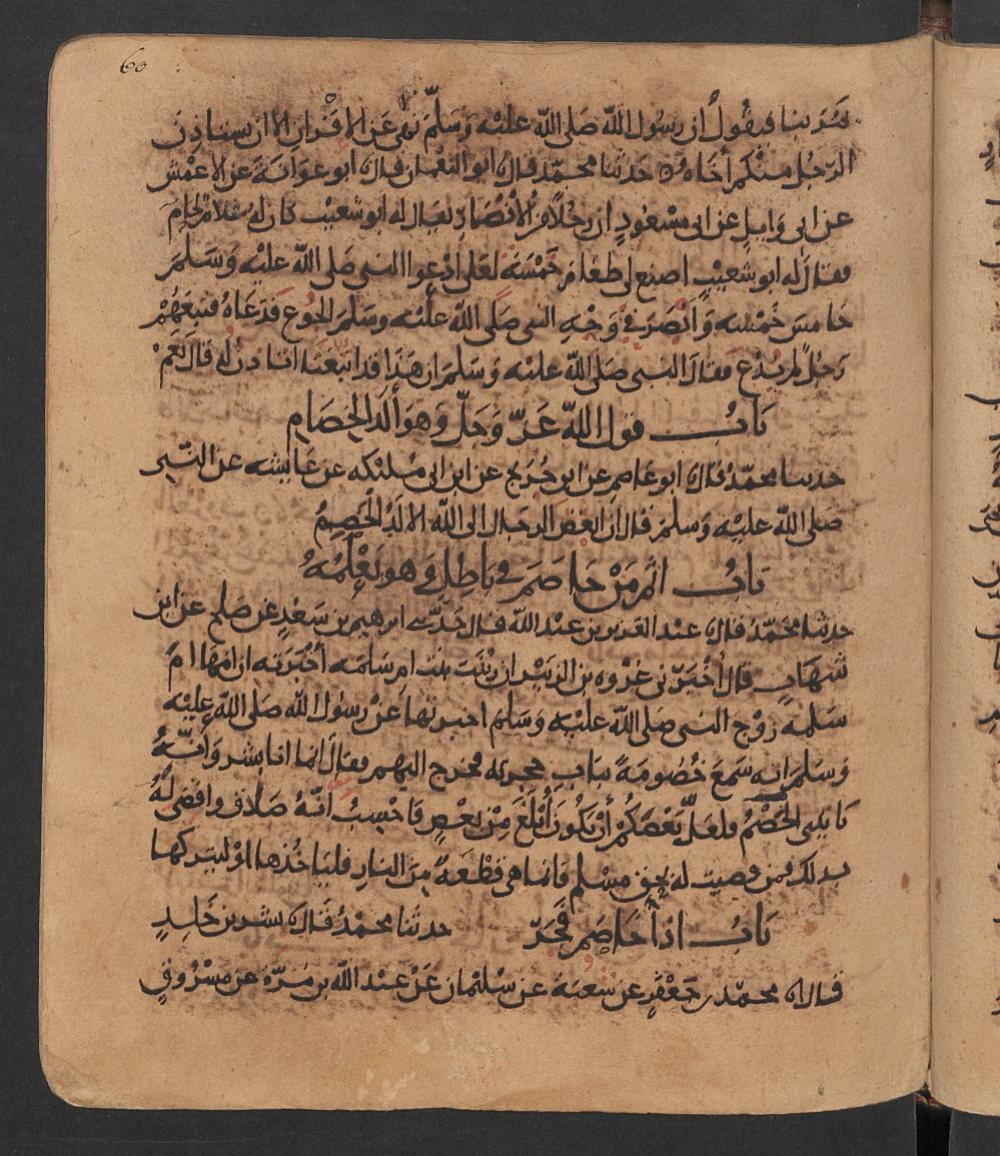 60
يمر بنا فيقول ان رسول الله صلى الله عليه وسلم نهى عن الاقران الا ان يستاذن
الرجل منكم أخاه ه حدثنا محمد قال ابو النعمان قال ابو عوانة عن الاعمش
عن ابي وايل عن ابي مسعود ان رجلا من الأنصار يقال له ابو شعيب كان له غلام لحام
فقال له ابو شعيب اصنع لي طعام خمسة لعلي ادعوا النبي صلى الله عليه وسلم
خامس خمسه وأبصر في وجه النبي صلى الله عليه وسلم الجوع فدعاه فتبعهم
رجل لم يدع فقال النبي صلى الله عليه وسلم ان هذا قد اتبعنا اتاذن له قال نعم
باب قول الله عز وجل وهو ألد الخصام
حدثنا محمد قال ابو عاصم عن ابن جريج عن ابن ابي مليكه عن عايشه عن النبي
صلى الله عليه وسلم قال ان ابغض الرجال الى الله الالد الخصم
باب اثم من خاصم في باطل وهو يعلمه
حدثنا محمد قال عبد العزيز بن عبد الله قال حدثني ابرهيم بن سعد عن صلح عن ابن
شهاب قال أخبرني عروه بن الزبير ان زينب بنت ام سلمه أخبرته ان امها ام
سلمه زوج النبي صلى الله عليه وسلم اخبرتها عن رسول الله صلى الله عليه
وسلم انه سمع خصومة بباب حجرته فخرج اليهم فقال انما انا بشر وأنه
ياتيني الخصم فلعل بعضكم أن يكون أبلغ من بعض فاحسب انه صادق واقضي له
بذلك فمن قضيت له بحق مسلم فانما هي قطعة من النار فلياخذها او ليتركها
باب اذا خاصم فجر حدثنا محمد قال بشر بن خلد
قال محمد بن جعفر عن شعبة عن سليمان عن عبد الله بن مرة عن مسروق